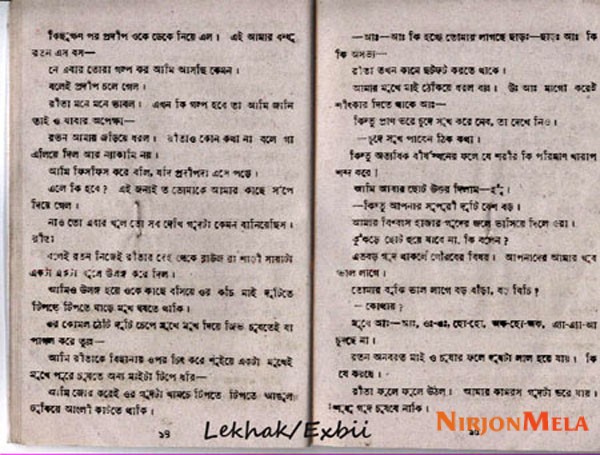 কিছুক্ষণ পর প্রদীপ ওকে ডেকে নিয়ে এল। এই আমার বন্ধু
রতন এস বস—
নে এবার তোরা গল্প কর আমি আসছি কেমন।
বলেই প্রদীপ চলে গেল।
রীতা মনে মনে ভাবল। এখন কি গল্প হবে তা আমি জানি
তাই ও যাবার অপেক্ষা—
রতন আমায় জড়িয়ে ধরল। রীতাও কোন কথা না বলে গা
এলিয়ে দিল আর ন্যাকামি নয়।
আমি ফিসফিস করে বলি, যদি প্রদীপদা এসে পড়ে।
এলে কি হবে? এই জন্যই ত তোমাকে আমার কাছে সঁপে
দিয়ে গেল।
নাও তো এবার খুলে তো সব দেখি গুদটা কেমন বানিয়েছিস।
রীতা।
বলেই রতন নিজেই রীতার দেহ থেকে ব্লাউজ ব্রা শাড়ী সায়াটা
একটা একটা খুলে উলঙ্গ করে দিল।
আমিও উলঙ্গ হয়ে ওকে কাছে বসিয়ে ওর কচি মাই দুটিতে
টিপতে টিপতে ঘাড়ে মুখ ঘষতে থাকি।
ওর কোমল ঠোঁট দুটি চেপে মুখে মুখ দিয়ে জিভ চুষতেই বা
পাগল করে তুল—
আমি রীতাকে বিছানায় ওপর চিৎ করে শুইয়ে একটা মুখেই
মুখে পুরে চুষতে অন্য মাইটা টিপে ধরি—
আমি জোর করেই ওর গুদটা খামচে টিপতে টিপতে আঙুল
ঢুকিয়ে আংলী কাটতে থাকি।
১২
—আঃ— আঃ কি হচ্ছে তোমার লাগছে ছাড়ঃ—ছাড়ঃ আঃ কি
কি অসভ্য—
রীতা তখন কামে ছটফট করতে থাকে।
আমার মুখে মাই ঠেকিয়ে ধরল বঃ। উঃ আঃ মাগো করেই
শীৎকার দিতে থাকে আঃ—
কিন্তু প্রাণ ভরে চুদে সুখ করে নেব, তা দেখে নিও।
—চুদে সুখ পাবেন ঠিক কথা।
কিন্তু অত্যধিক বীর্যস্খলনের ফলে যে শরীর কি পরিমাণ খারাপ
শব্দ করে।
আমি আবার ছোট উত্তর দিলাম—হুঁ।
—কিন্তু আপনার সুপুরী দুটি বেশ বড়।
আমার বিশ্বাস হাজার গুদের জলে ভাসিয়ে দিলে ওরা।
কুঁকড়ে ছোট হয়ে যাবে না, কি বলেন?
এতবড় গুদ থাকলে গৌরবের বিষয়। আপনাদের আমার খুব
ভাল লাগে।
তোমায় বুঝি ভাল লাগে বড় বাঁড়া, বড় বিচি?
—কোথায়?
মুখে আঃ—আঃ, ওঃ-ওঃ, হো-হো, এ্যা-এ্যা-আ
চুদছে না।
রতন অনবরত মাই ও চুষার ফলে দুধটা লাল হয়ে যায়। কি
যে করছে।
রীতা ফুলে ফুলে উঠল। আমার কামরস গুদটা ভরে যায়।
গুদ চুষবে নাকি।
Lekhak/Exbii
NIRJONMELA